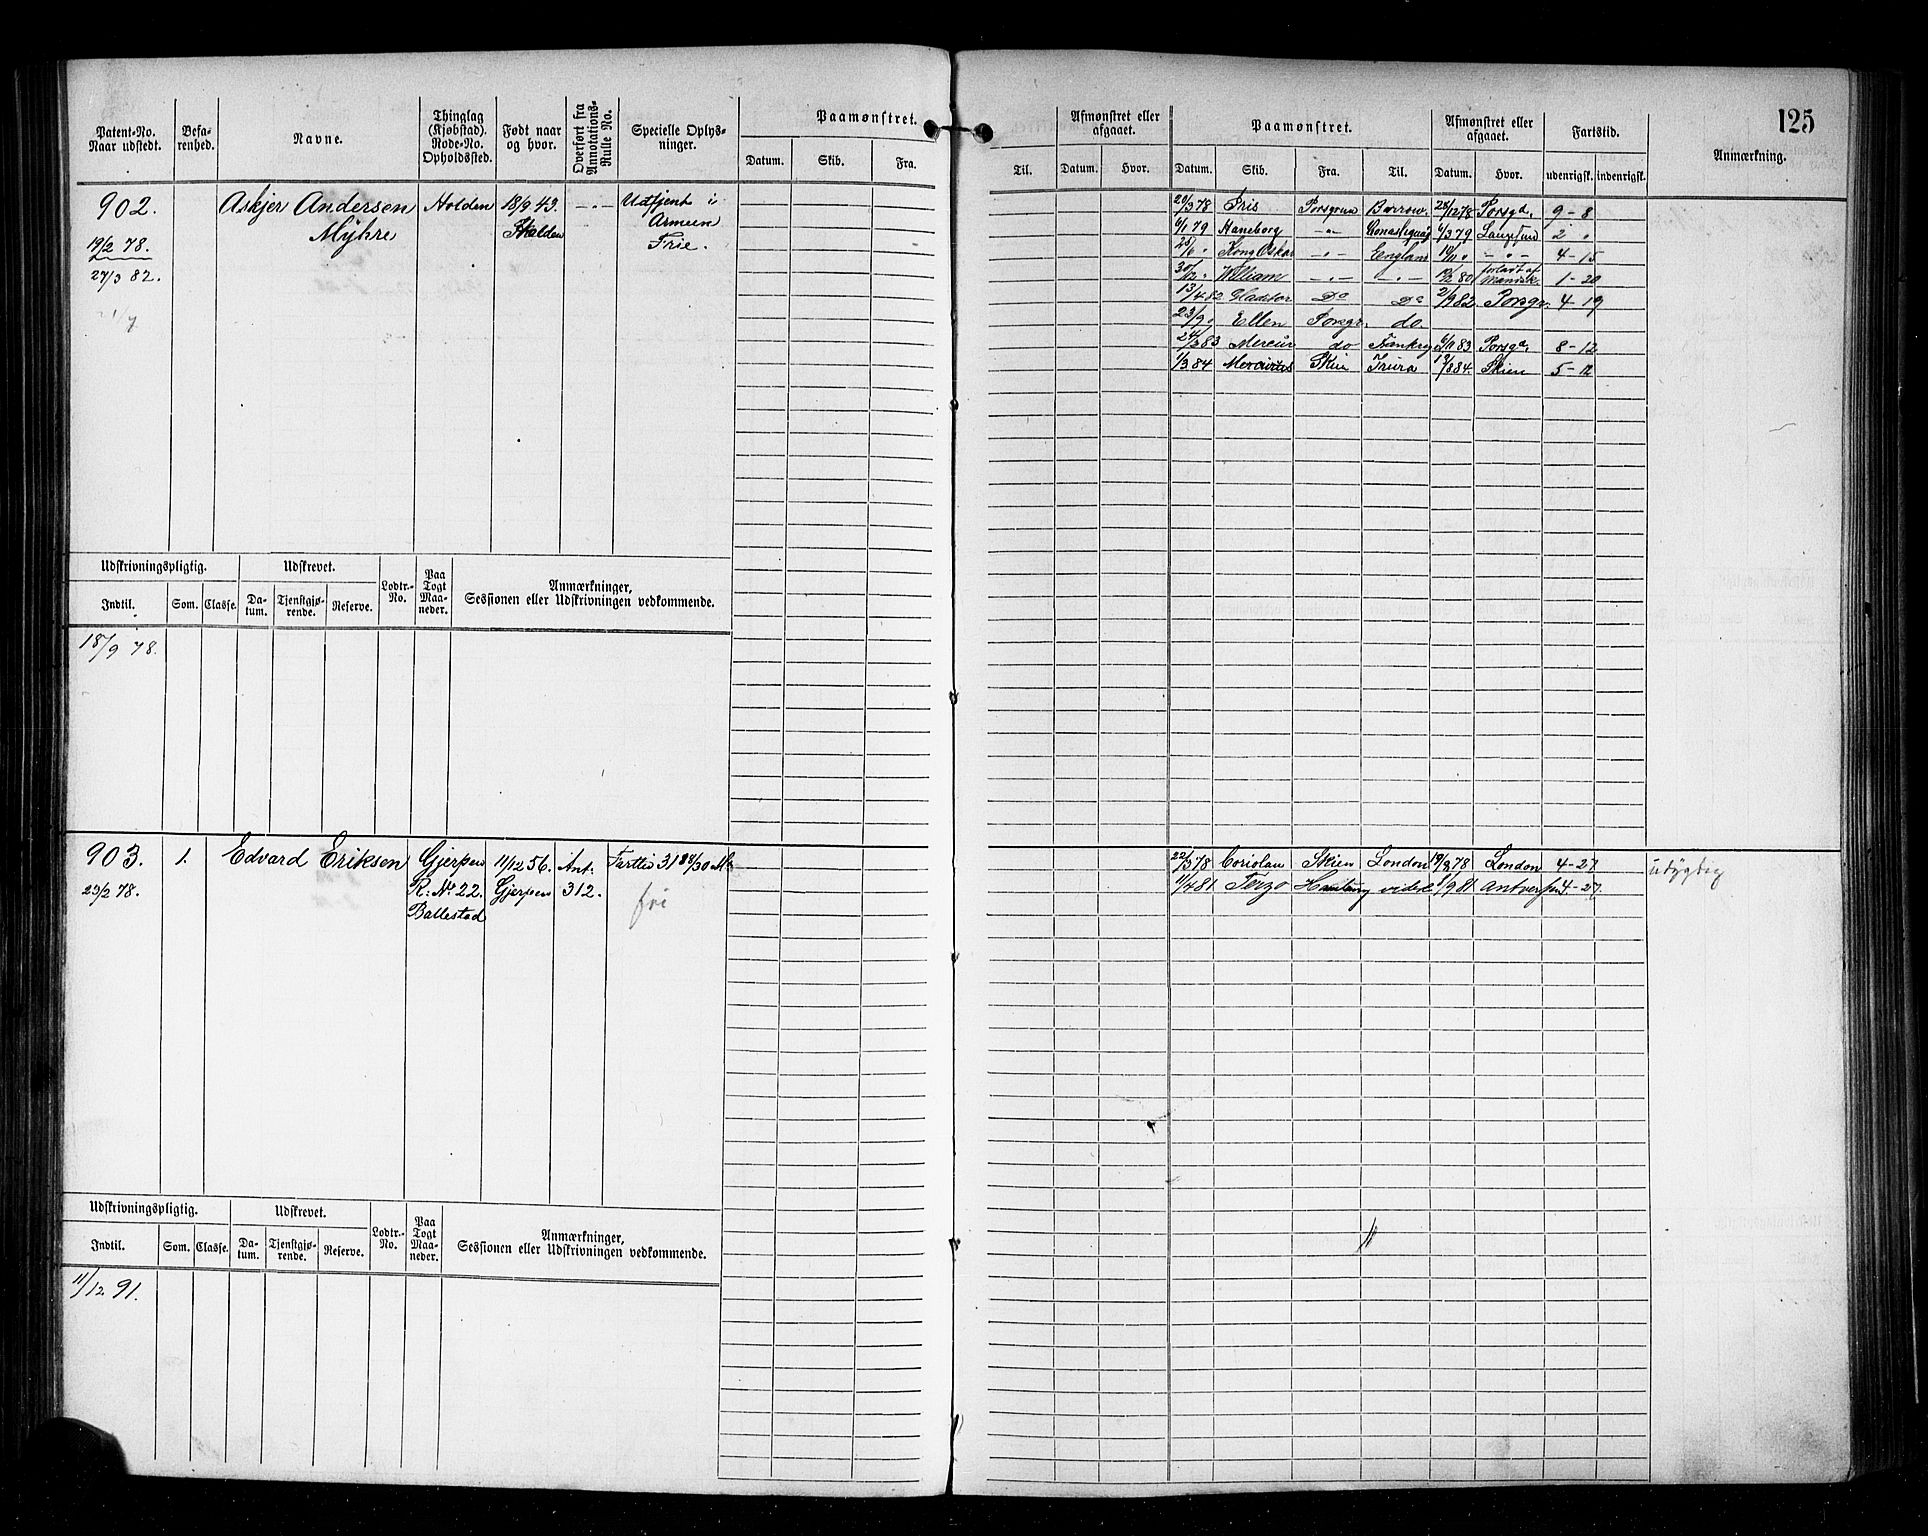 125
Patent-No. Naar udstedt. Befa-renhed. Navne. Thinglag (Kjøbstad). Rode-No. Opholdssted. Født naar og hvor. Overført fra Annotations-Rulle No. Specielle Oplys-ninger. Paamønstret. Afmønstret eller afgaaet. Paamønstret. Afmønstret eller afgaaet. Fartstid. Anmærkning.
Datum. Skib. Fra. Til. Datum. Hvor. Datum. Skib. Fra. Til. Datum. Hvor. udenrigsk. indenrigsk.
902. Askjer Andersen Holden 18/9 43. -"- Udtjent i
Myhre Holden Armeen
19/2 78. Frie.
27/3 82.
20/3 78 Fris Porsgrun Barrow. 28/12 78 Porsgd. 9-8
6/1 79 Haneborg -"- 4/3 79 2 "
Kong Oskar -"- England -"- 4-15
William -"- -"- 80 forladt af 1-20
13/4 82 Do Do 2/9 82. Porsgr. 4-19
23/9 " Ellen Porsgr. do.
24/3 83 Mercur do 83 Porsgd. 8-12
1/3 84 Mercurius Skien 84. Skien 5-12
Udskrivningspligtig. Udskrevet. Lodtr.-No. Paa Togt Maa-neder. Anmærkninger, Sessionen eller Udskrivningen vedkommende.
Indtil. Som. Classe. Da-tum. Tjenstgjø-rende. Reserve.
18/9 78.
903. 1. Edvard Eriksen Gjerpen 11/12 56. Ant. 
23/2 78. R: No 22. Gjerpen 312. fri
Ballestad
22/3 78 Coriolan Skien London 78 London 4-27 udygtig
4 81 Terzo Hamburg videre 9 81 Antverpen 4-27
Udskrivningspligtig. Udskrevet. Lodtr.-No. Paa Togt Maa-neder. Anmærkninger, Sessionen eller Udskrivningen vedkommende.
Indtil. Som. Classe. Da-tum. Tjenstgjø-rende. Reserve.
11/12 91.